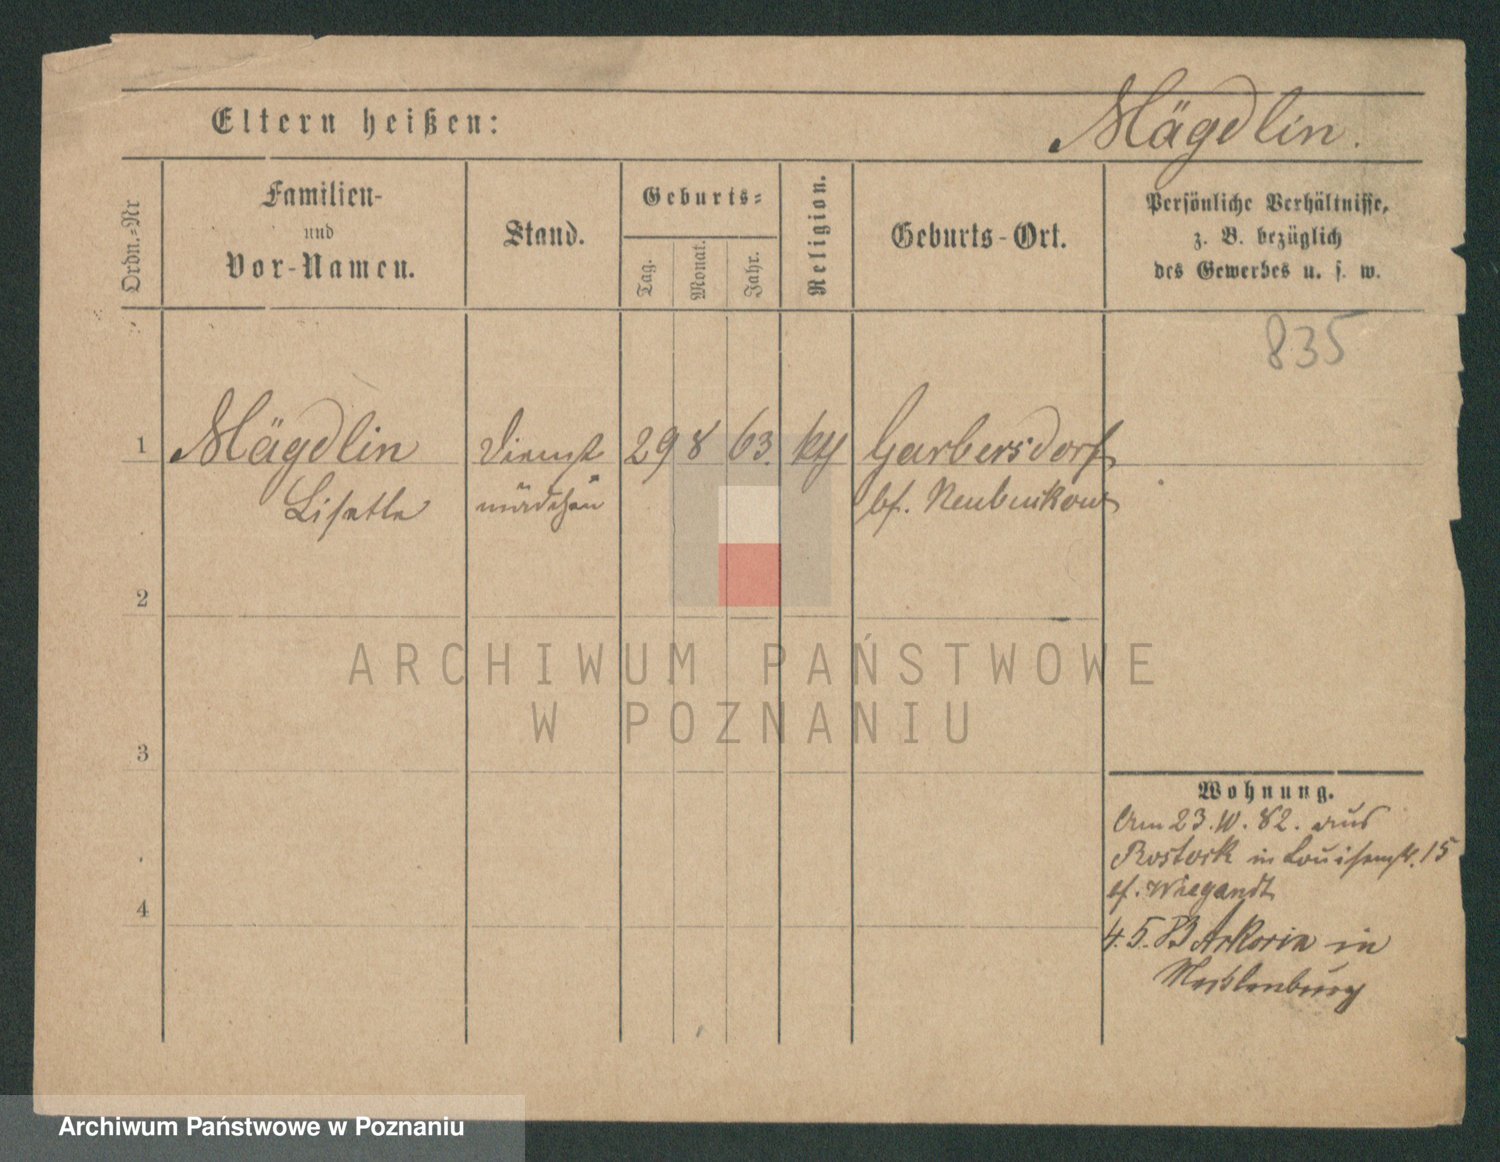 Eltern heißen:
Mägdlin.
Ordn.=Nr
Familien-
und
Vor-Namen.
Stand.
Geburts=
Tag.
Monat.
Jahr.
Religion.
Geburts-Ort.
Persönliche Verhältnisse,
z. B. bezüglich
des Gewerbes u. s. w.
835
1 Mägdlin Dienst 29 8 63. Garbersdorf
Lisette mädchen bf. Neubukow
2
3
4
Wohnung.
Am 23. 10. 82. aus
Rostock in Louisenstr. 15
Wiegandt
4. 5. 83 in
Mecklenburg
ARCHIWUM PAŃSTWOWE
W POZNANIU
Archiwum Państwowe w Poznaniu